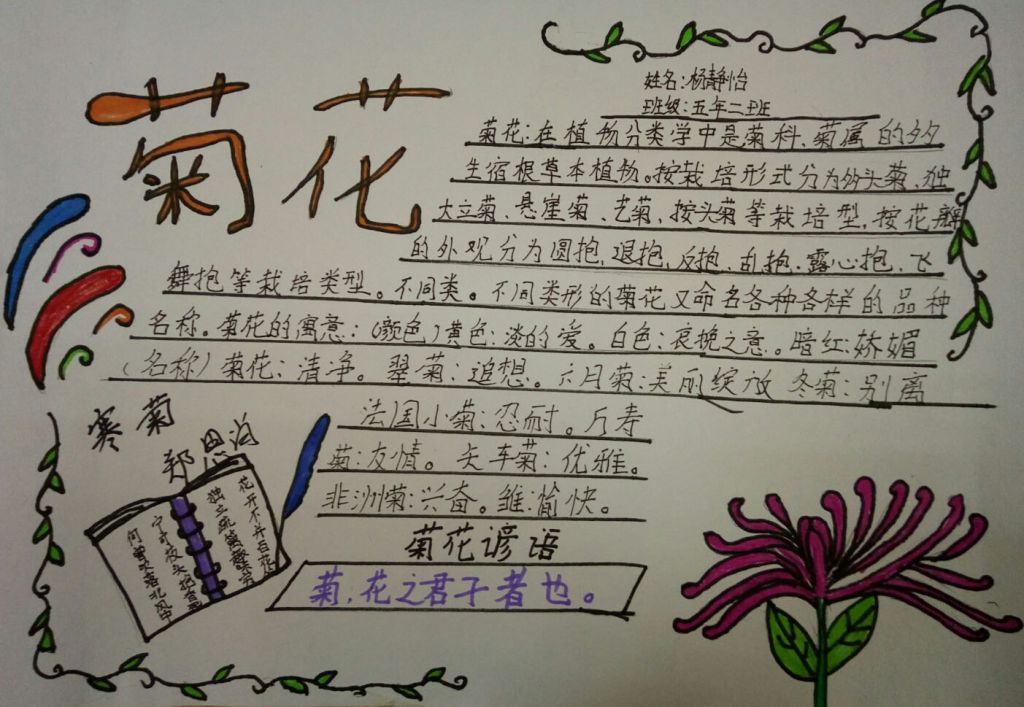 菊花
姓名:杨静怡
班级:五年二班
菊花:在植物分类学中是菊科、菊属的多
生宿根草本植物。按栽培形式分为多头菊、独
大立菊、悬崖菊、艺菊、按头菊等栽培型,按花瓣
的外观分为圆抱,退抱,反抱、乱抱、露心抱、飞
舞抱等栽培类型。不同类。不同类形的菊花又命名各种各样的品种
名称。菊花的寓意:(颜色)黄色:淡的爱。白色:哀挽之意。暗红:娇媚
(名称)菊花:清净。翠菊:追想。六月菊:美丽绽放 冬菊:别离
法国小菊:忍耐。万寿
菊:友情。矢车菊:优雅。
非洲菊:兴奋。雏:愉快。
寒菊
郑思肖
花开不并百花
独立疏篱趣
宁可枝头抱香死
何曾吹落北风中
菊花谚语
菊,花之君子者也。